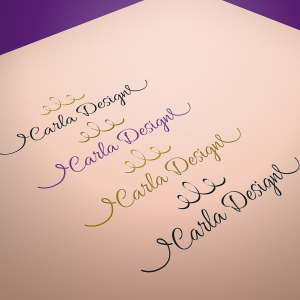 Carla Designs
Carla Designs
Carla Designs
Carla Designs